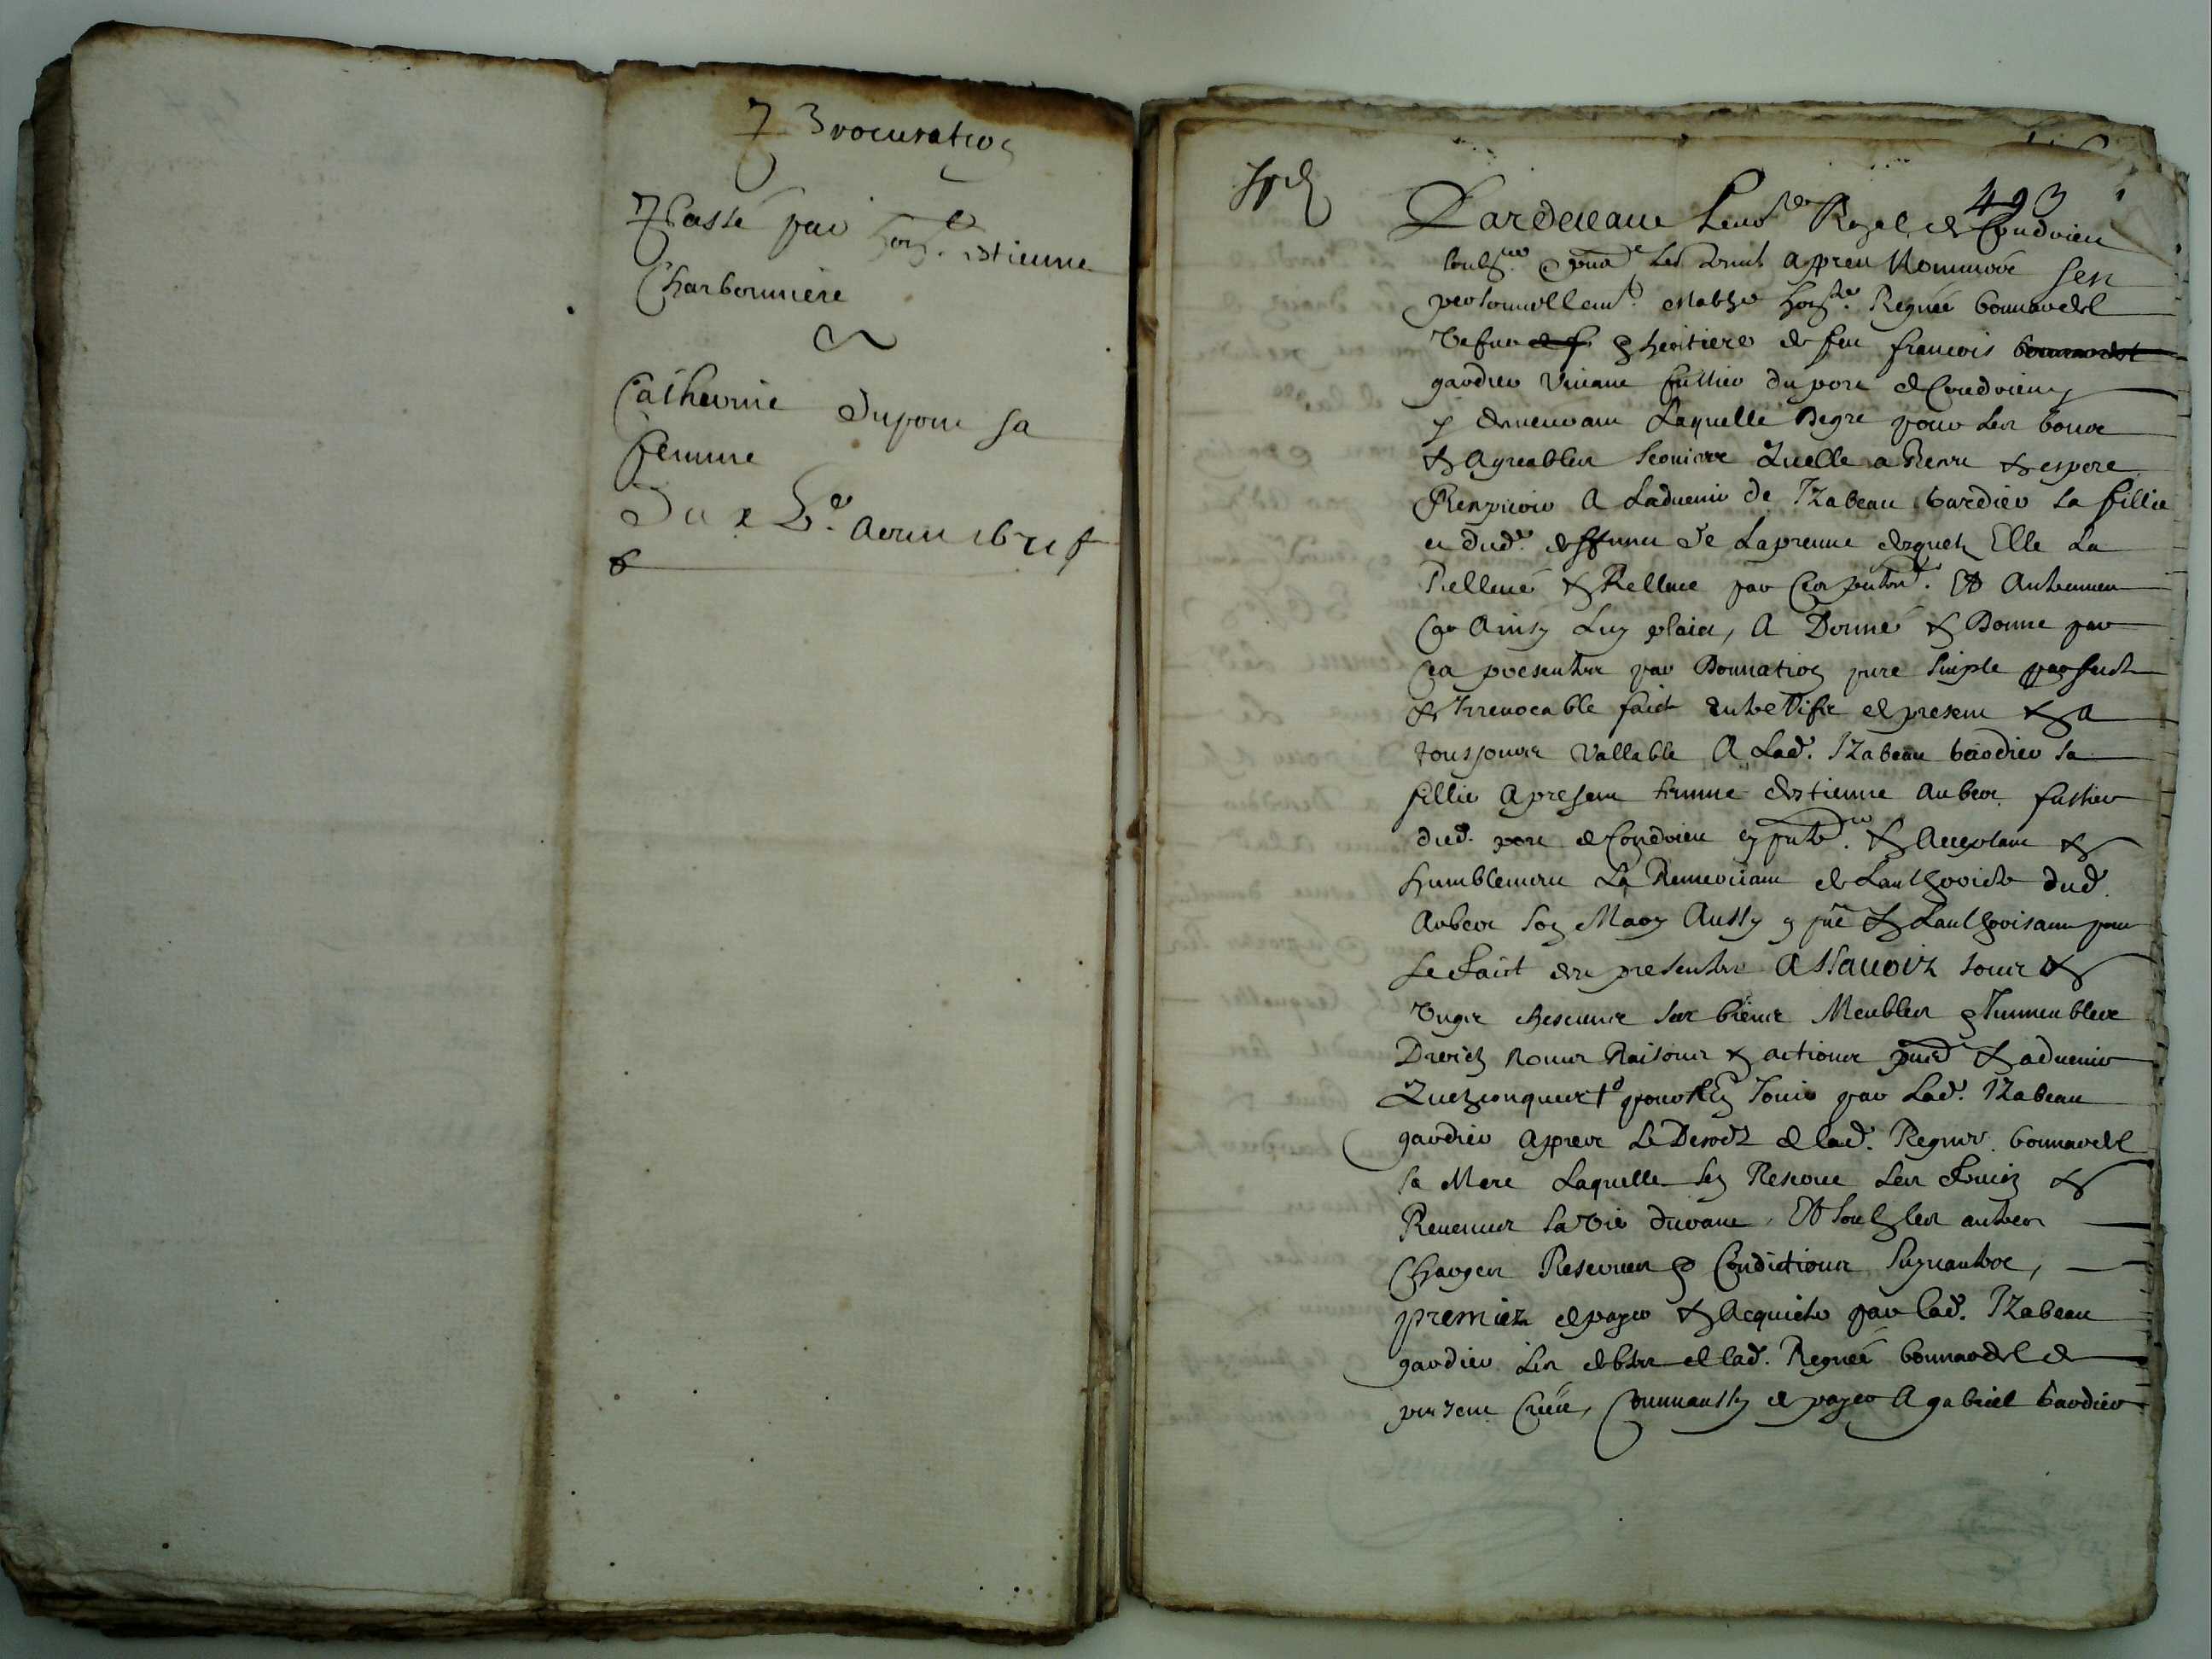 Procuration
Passé par hon.e Estienne
Charbonniere
Catherine dupon sa
femme
Du x L.e Avril 1671
493
Pardevant Royal de Condrieu
soubz.ne appres Nommés sen
personnellem.t establye hon.e Regnée bonnardel
Vefve & heritiere de feu francois
gardier vivant fustier du port de Condrieu
y demeurant Laquelle de gre pour les bons
& agreables services Quelle a Receu & espere
Recepvoir A Ladvenir de Izabeau bardier sa fillie
et dud. deffunct de La preuve desquels Elle La
Rellevé & Relleve par Ces Et Autrement
Car Ainsy Luy plaict, A Donné & Donne par
Ces presentes par Donnation pure simple parfaite
& Irrevocable faict entre Vifz de present & a
tousjours Vallable A Lad. Izabeau bardier sa
fillie A present femme destienne Aubert fustier
dud. port de Condrieu & Acceptant &
humblement La Remerciant de Lauthorité dud.
Aubert son Mary Aussy & Lauthorisant pour
Le faict des presentes Assavoir tous &
Ungs chescuns ses biens Meubles & Immeubles
Droicts Noms Raisons & actions & advenir
Quelzconques pour En Jouir par Lad. Izabeau
gardier Appres Le Decedz de lad. Regnée bonnardel
sa Mere Laquelle sen Reserve Les fruicts &
Revenus sa Vie durant, Et soubz les autres
Charges Reserves & Conditions Suyvantes,
premier de payer & Acquicter par lad. Izabeau
gardier Les debtes de lad. Regnée bonnardel de
present Créés, Comme aussy de payer A gabriel bardier